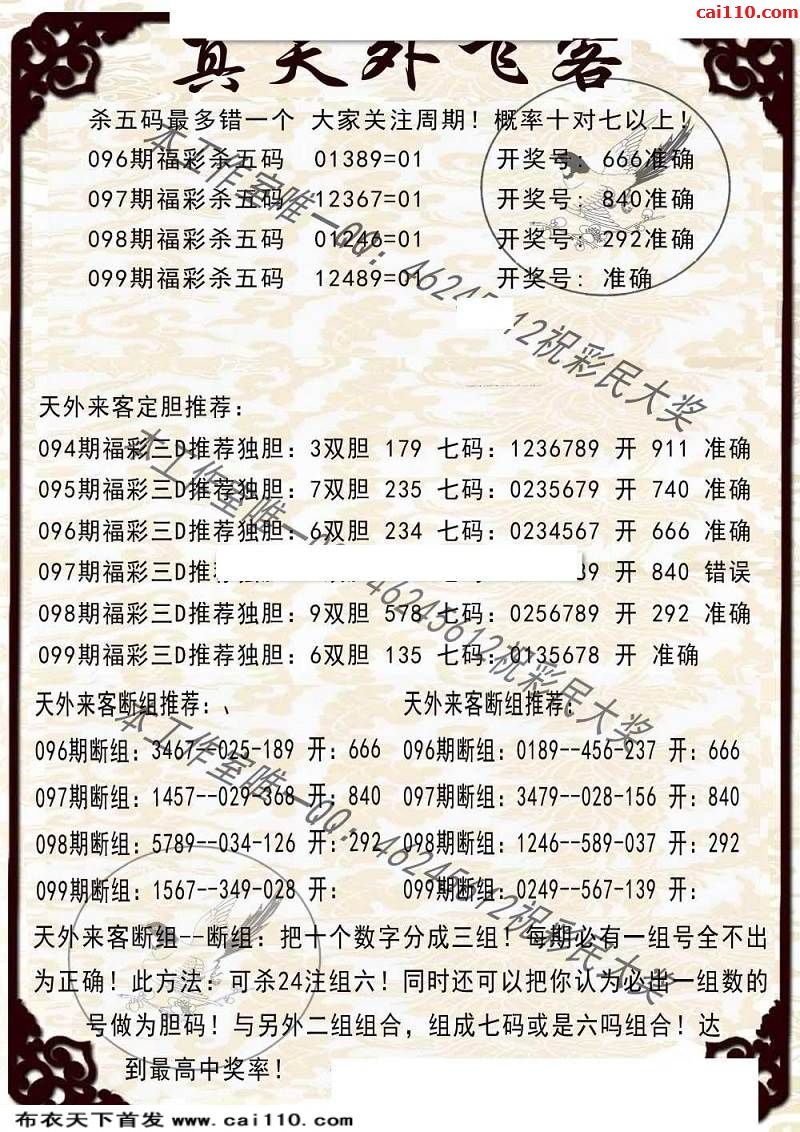 cai110.com
真天外飞客
杀五码最多错一个 大家关注周期！概率十对七以上！
096期福彩杀五码 01389=01 开奖号：666准确
097期福彩杀五码 12367=01 开奖号：840准确
098期福彩杀五码 01246=01 开奖号：292准确
099期福彩杀五码 12489=01 开奖号：准确
本工作室唯一QQ：46245612祝彩民大奖
天外来客定胆推荐：
094期福彩三D推荐独胆：3双胆 179 七码：1236789 开 911 准确
095期福彩三D推荐独胆：7双胆 235 七码：0235679 开 740 准确
096期福彩三D推荐独胆：6双胆 234 七码：0234567 开 666 准确
097期福彩三D推荐独胆 89 开 840 错误
098期福彩三D推荐独胆：9双胆 578 七码：0256789 开 292 准确
099期福彩三D推荐独胆：6双胆 135 七码：0135678 开 准确
本工作室唯一 46245612祝彩民大奖
天外来客断组推荐：、 天外来客断组推荐：
096期断组：3467--025-189 开：666 096期断组：0189--456-237 开：666
097期断组：1457--029-368 开：840 097期断组：3479--028-156 开：840
098期断组：5789--034-126 开：292 098期断组：1246--589-037 开：292
099期断组：1567--349-028 开： 099期断组：0249--567-139 开：
本工作室唯一QQ：46245612祝彩民大奖
天外来客断组--断组：把十个数字分成三组！每期必有一组号全不出
为正确！此方法：可杀24注组六！同时还可以把你认为必出一组数的
号做为胆码！与另外二组组合，组成七码或是六吗组合！达
到最高中奖率！
布衣天下首发 www.cai110.com